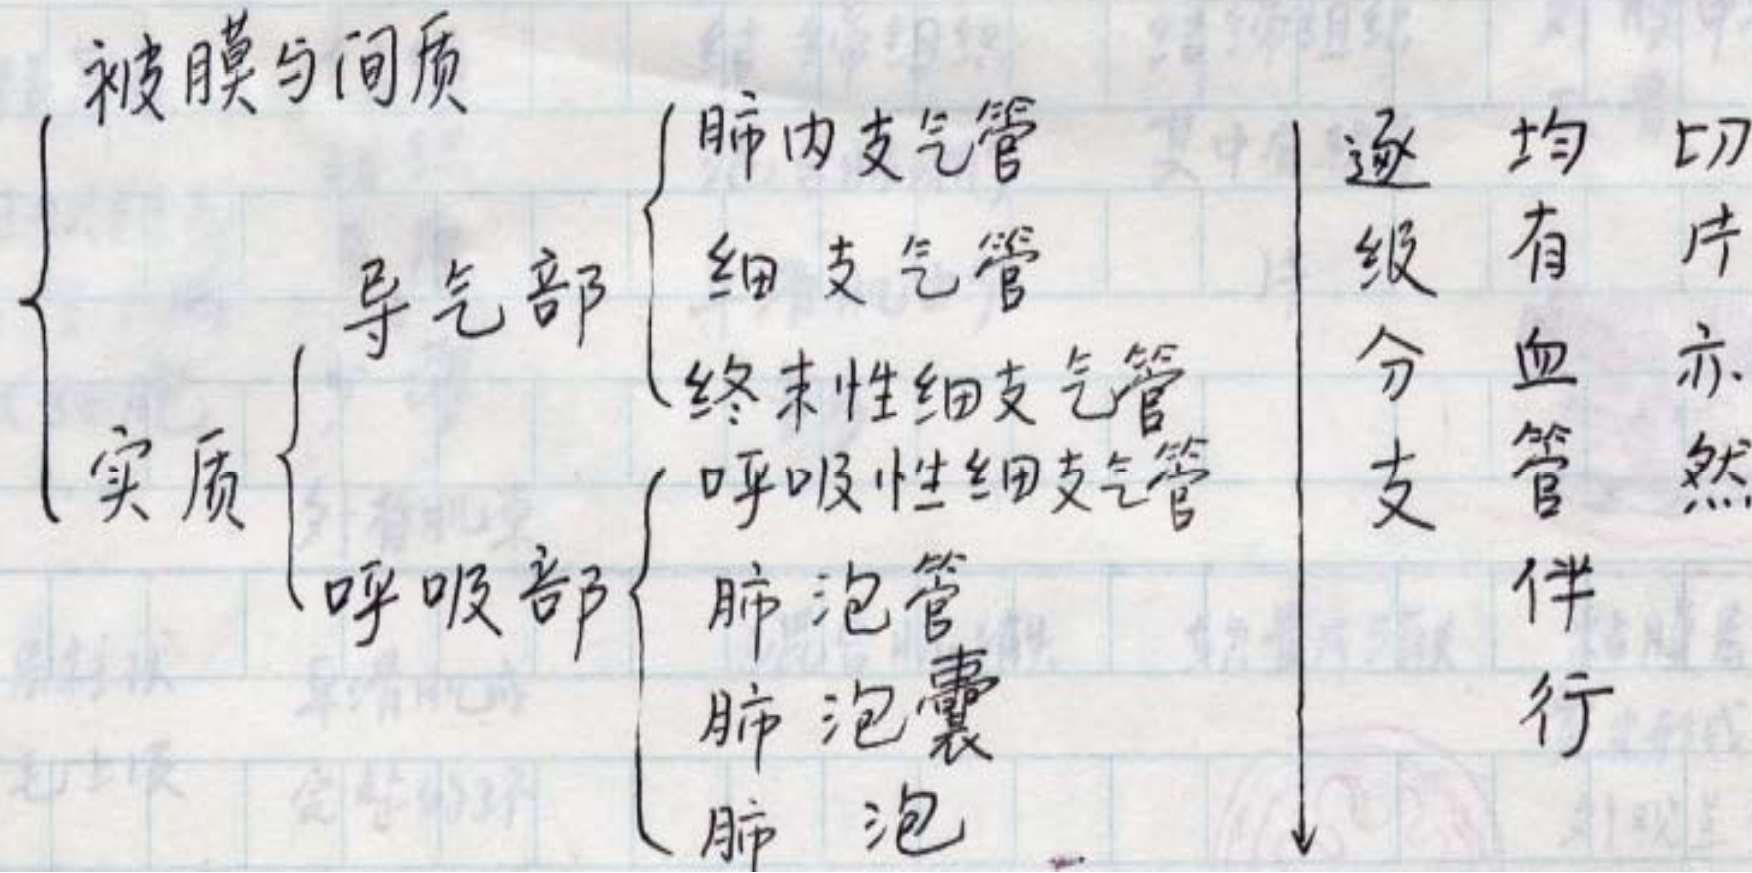 被膜与间质
实质
导气部
肺内支气管
细支气管
终末性细支气管
呼吸部
呼吸性细支气管
肺泡管
肺泡囊
肺泡
逐级分支
均有血管伴行
切片亦然